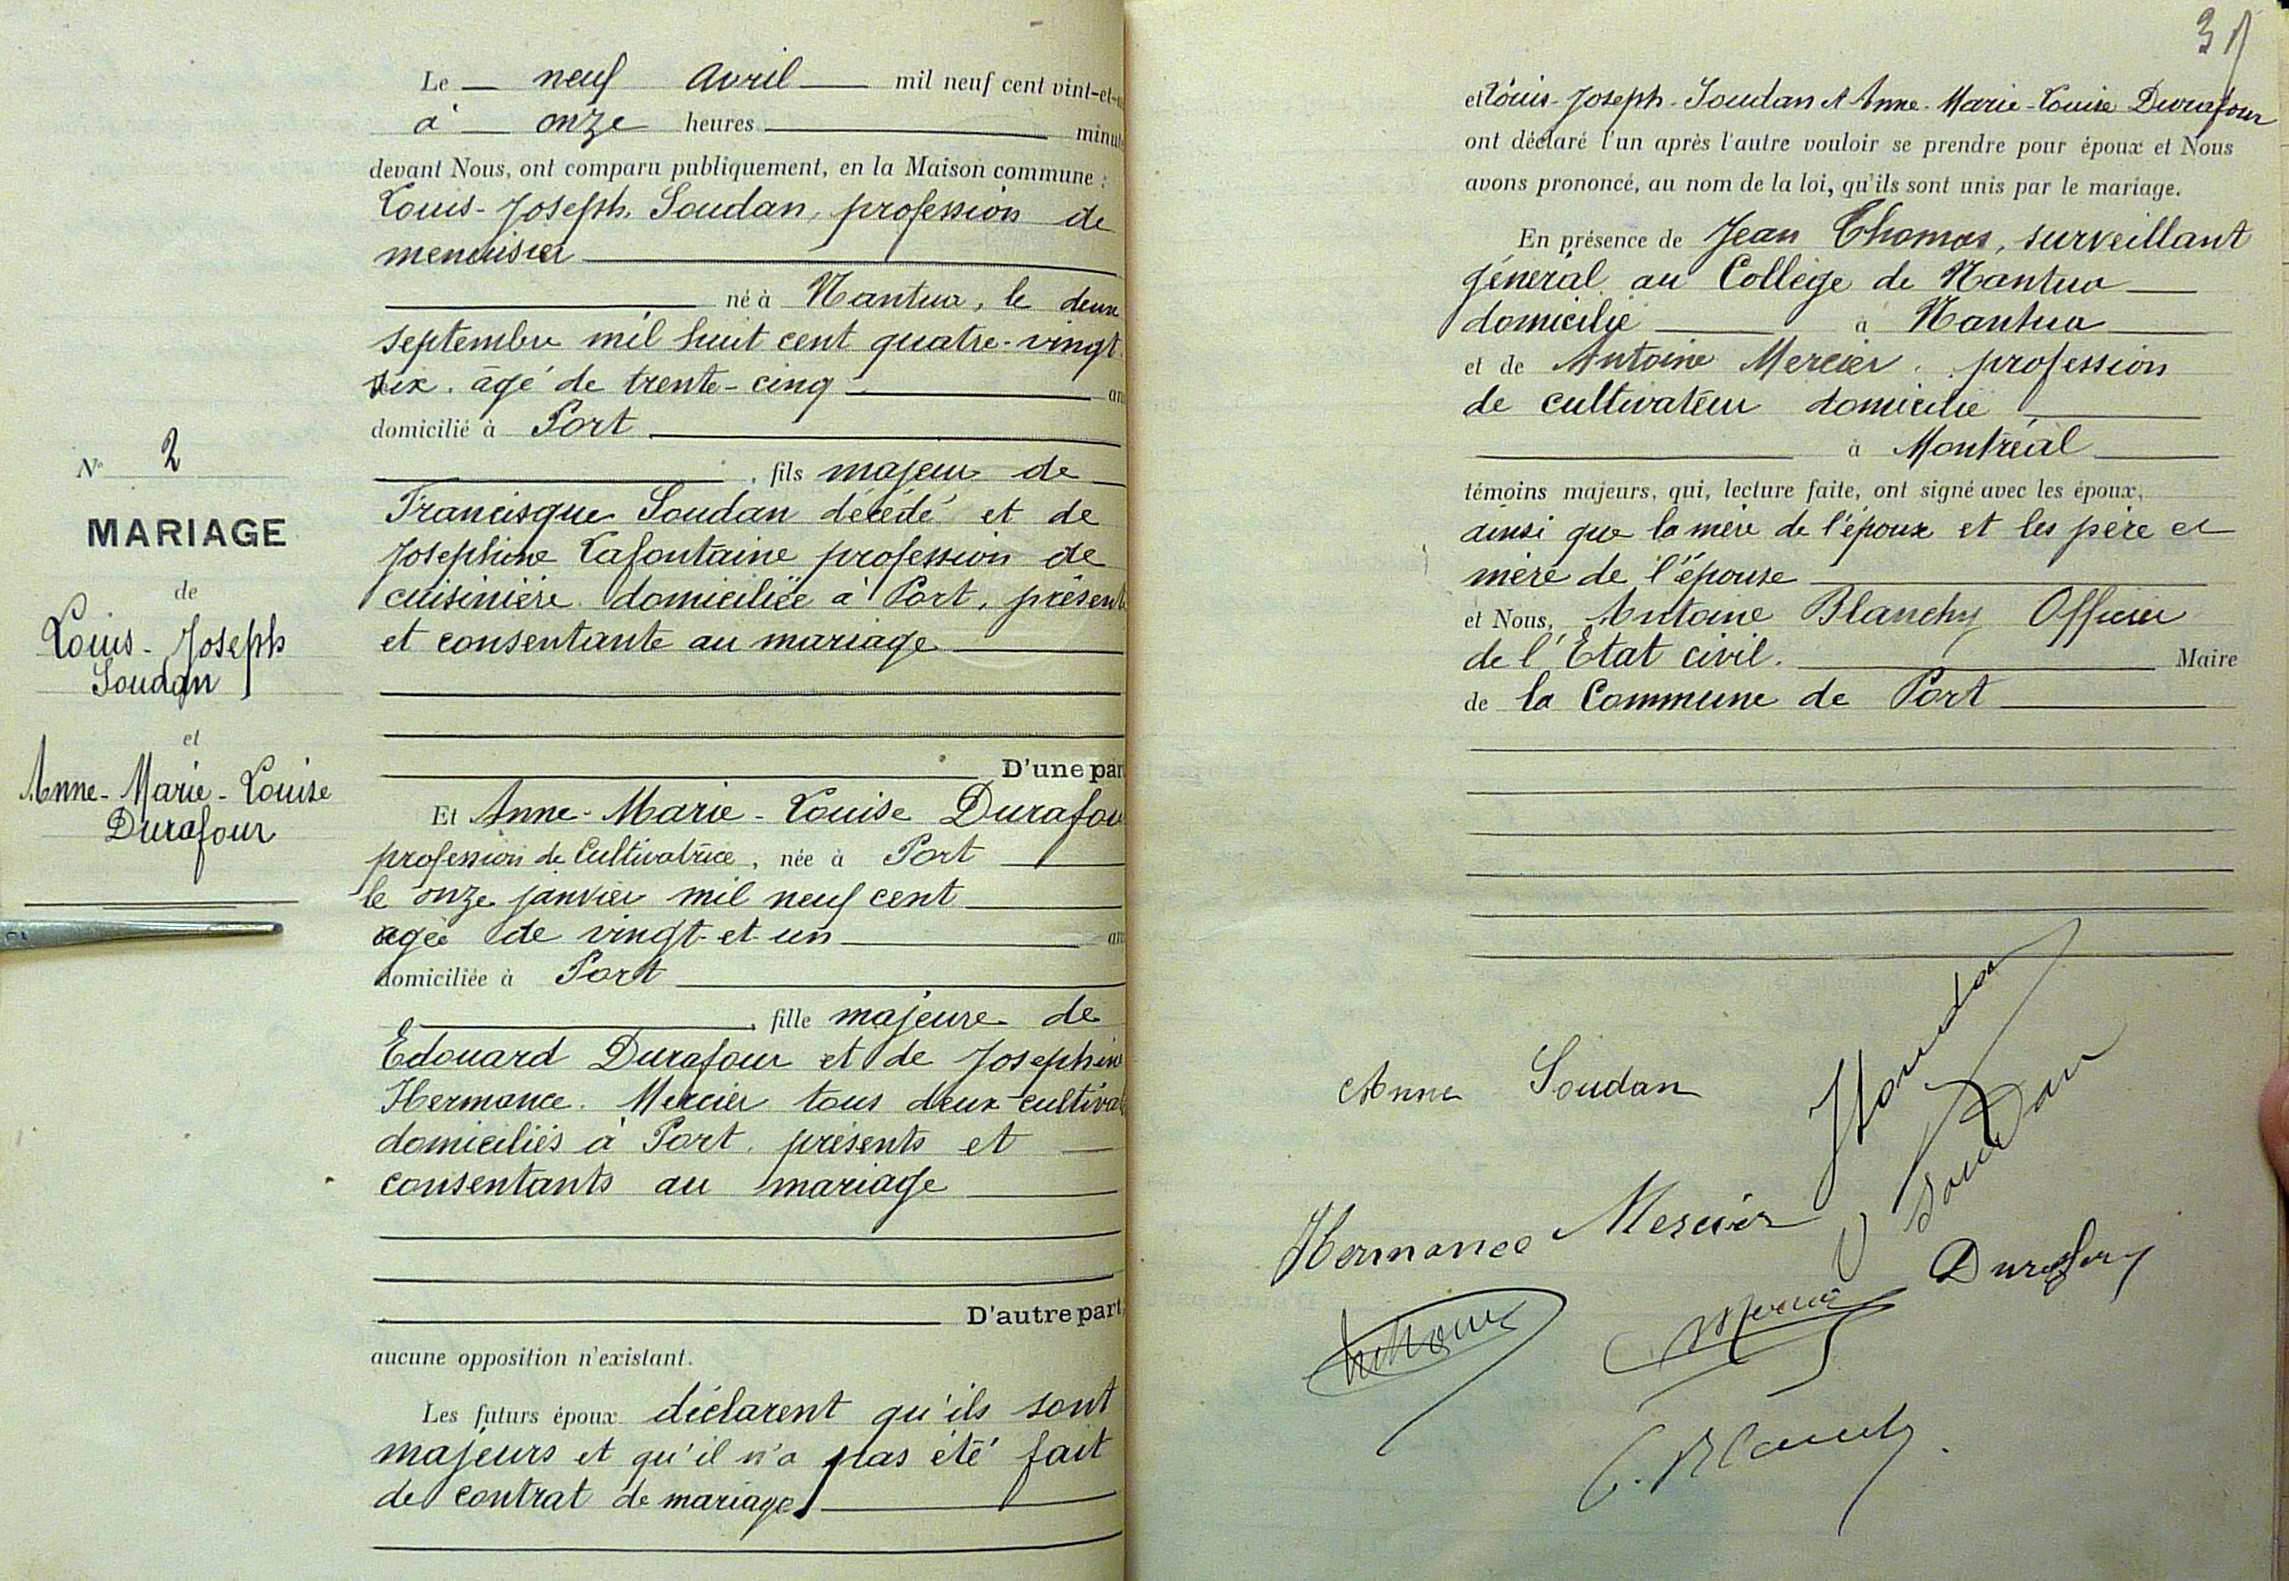 N° 2
MARIAGE
de
Louis-Joseph
Soudan
et
Anne-Marie-Louise
Durafour
Le neuf avril mil neuf cent vint-et-u
à onze heures minut
devant Nous, ont comparu publiquement, en la Maison commune :
Louis-Joseph Soudan, profession de
menuisier
né à Nantua, le deux
septembre mil huit cent quatre-vingt
six. âgé de trente-cinq an
domicilié à Port
, fils majeur de
Francisque Soudan décédé et de
Josephine Lafontaine profession de
cuisinière domiciliée à Port, présent
et consentante au mariage
D'une par
Et Anne-Marie-Louise Durafou
profession de Cultivatrice, née à Port
le onze janvier mil neuf cent
agée de vingt-et-un an
domiciliée à Port
, fille majeure de
Edouard Durafour et de Josephin
Hermance Mercier tous deux cultiva
domiciliés à Port. présents et
consentants au mariage
D'autre part,
aucune opposition n'existant.
Les futurs époux déclarent qu'ils sont
majeurs et qu'il n'a pas été fait
de contrat de mariage
3
et Louis-Joseph-Soudan et Anne-Marie-Louise Durafour
ont déclaré l'un après l'autre vouloir se prendre pour époux et Nous
avons prononcé, au nom de la loi, qu'ils sont unis par le mariage.
En présence de Jean Thomas, surveillant
géneral au Collège de Nantua
domicilié à Nantua
et de Antoine Mercier, profession
de cultivateur domicilié
à Montréal
témoins majeurs, qui, lecture faite, ont signé avec les époux,
ainsi que la mère de l'époux et les père et
mère de l'épouse
et Nous, Antoine Blanchy Officier
de l'Etat civil. Maire
de la Commune de Port
Anne Soudan
Soudan
Hermance Mercier
Durafour